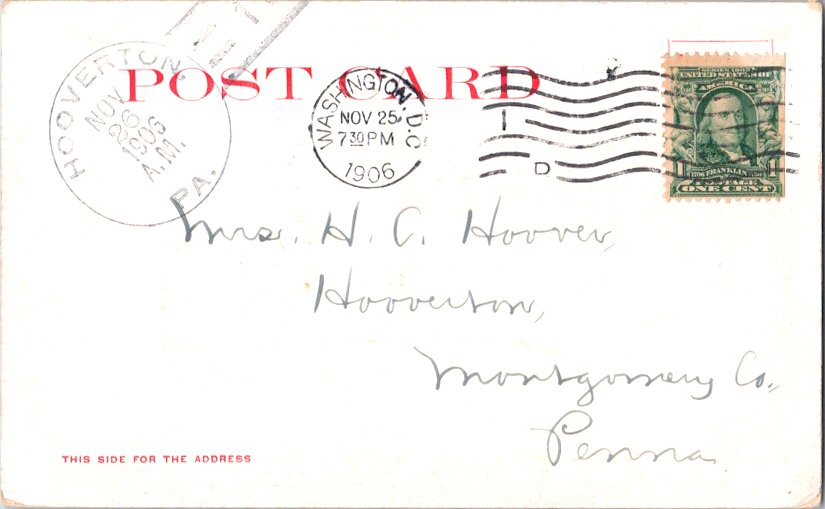 POST CARD
HOOVERTON,
NOV
26
1906
A.M.
PA.
WASHINGTON, D.C.
NOV 25
7 30 PM
1906
D
SERIES 1902
UNITED STATES OF
AMERICA
1 FRANKLIN 1
POSTAGE
ONE CENT
Mrs. H. C. Hoover,
Hooverton,
Montgomery Co.,
Penna.
THIS SIDE FOR THE ADDRESS